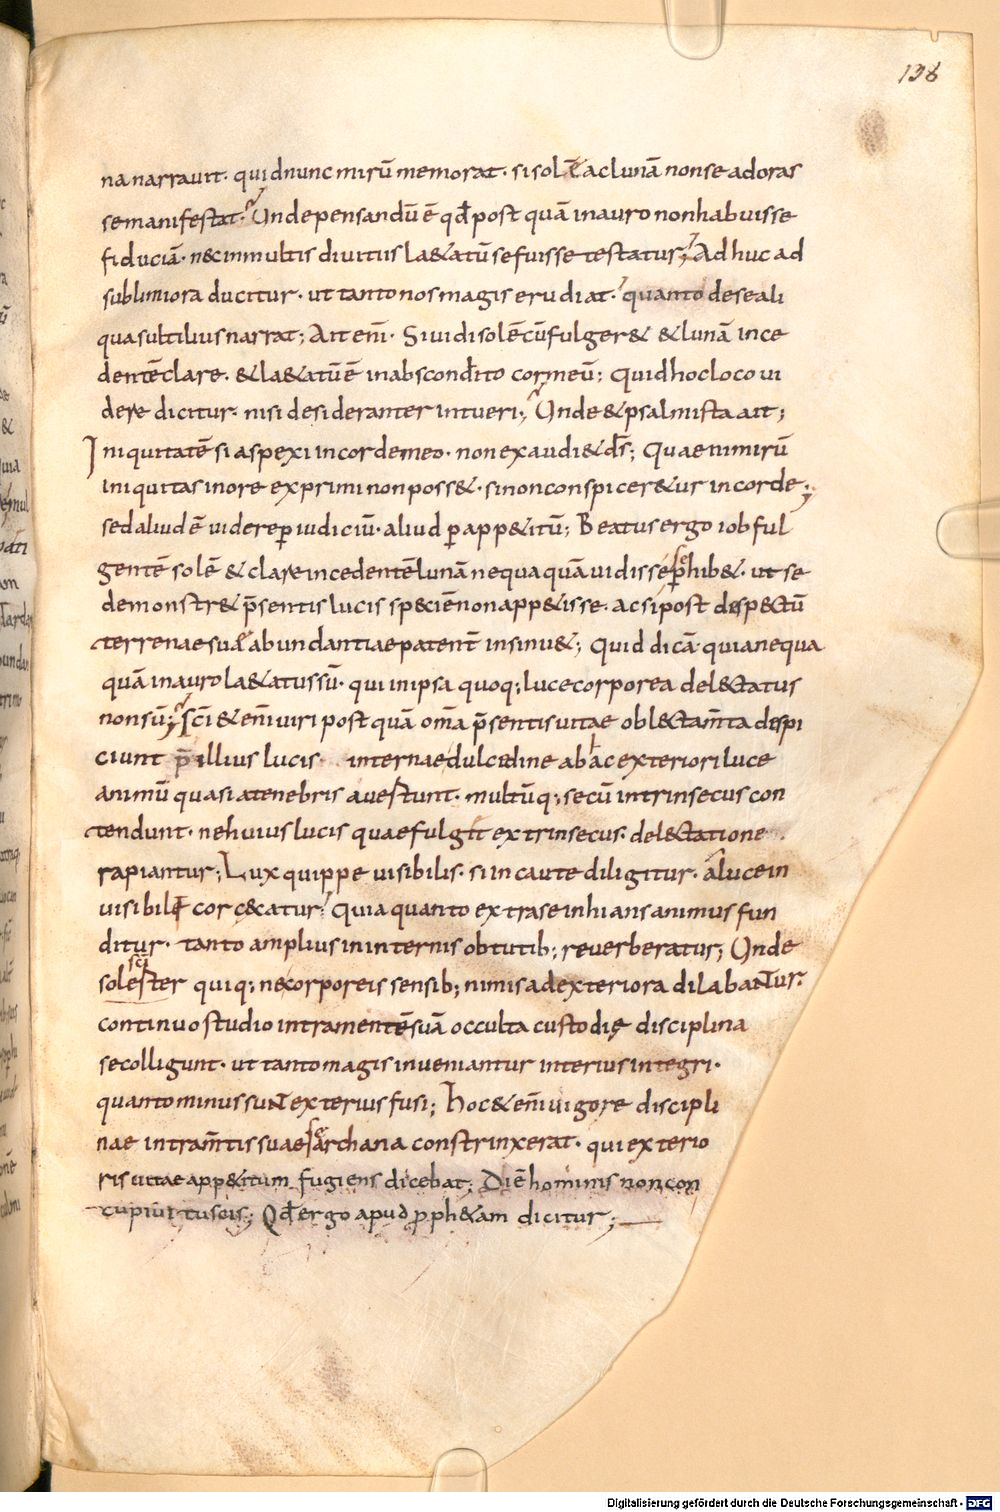 138
na narravit· quid nunc mirū memorat· si solē ac lunā non se adorasse manifestat· Unde pensandū ē qđ post quā in auro non habuisse
fiduciā· nec in multis divitiis la&atū se fuisse testatus; Ad huc ad
sublimiora ducitur· ut tanto nos magis erudiat· quanto de se ali
qua subtilius narrat; Ait enī· Si vidi solē cū fulger& & lunā ince
dentē clare· & la&atū ē in abscondito cor meū; Quid hoc loco vi
dere dicitur· nisi desideranter intueri; Unde & psalmista ait;
Iniquitatē si aspexi in corde meo· non exaudi& ds̄; Quae nimirū
iniquitas in ore exprimi non poss&· si non conspicer&ur in corde;
sed aliud ē videre ꝑ iudiciū· aliud ꝑ app&itū; Beatus ergo iob ful
gentē solē & clare incedentē lunā nequaquā vidisse se ꝑhib&· ut se
demonstr& p̄sentis lucis speciē non app&isse· ac si post despectū
terrenae suae abundantiae patent̄ insinu&; Quid dicā· quia nequa
quā in auro la&atus sū· qui in ipsa quoq; luce corporea delectatus
non sū; Sc̄i &enī viri post quā om̄a p̄sentis vitae oblectam̄ta despi
ciunt p̄ illius lucis internae dulcedine ab hac exteriori luce
animū quasi a tenebris avertunt· multūq; secū intrinsecus con
tendunt· ne huius lucis quae fulgit extrinsecus· delectatione
rapiantur; Lux quippe visibilis· si incaute diligitur· a luce in
visibilē cor cecatur· Quia quanto extra se inhians animus fun
ditur· tanto amplius in internis obtutib; reverberatus; Unde
sollester sci quiq; ne corporeis sensib; nimis ad exteriora dilabantur·
continuo studio intra mentē suā occulta custodię disciplina
se colligunt· ut tanto magis inveniantur interius integri·
quanto minus sunt exterius fusi; Hoc &enī vigore discipli
nae intra m̄tis suae se archana constrinxerat· qui exterio
ris vitae app&itum fugiens dicebat; Diē hominis non con
cupivi tu scis; Qđ ergo apud ꝓph&am dicitur;
Digitalisierung gefördert durch die Deutsche Forschungsgemeinschaft - DFG